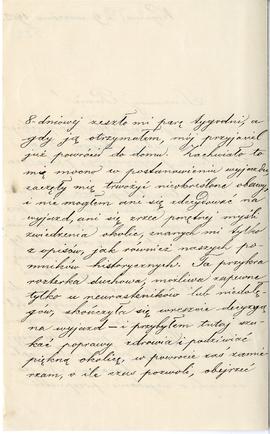 8-dniowej zeszło mi parę tygodni, a
gdy ją otrzymałem, mój przyjaciel
już powrócił do domu. Zachwiało to
mię mocno w postanowieniu wyjazdu,
zaczęły mię trwożyć nieokreślone obawy,
i nie mogłem ani się zdecydować na
wyjazd, ani się zrzec ponętnej myśli
zwiedzenia okolic, znanych mi tylko
z opisów, jak również naszych po-
mników historycznych. Ta przykra
rozterka duchowa, możliwa zapewne
tylko u neurasteników lub niedołę-
gów, skończyła się wreszcie decyzją
na wyjazd – i przybyłem tutaj szu-
kać poprawy zdrowia i podziwiać
piękną okolicę, w powrocie zaś zamie-
rzam, o ile czas pozwoli, obejrzeć